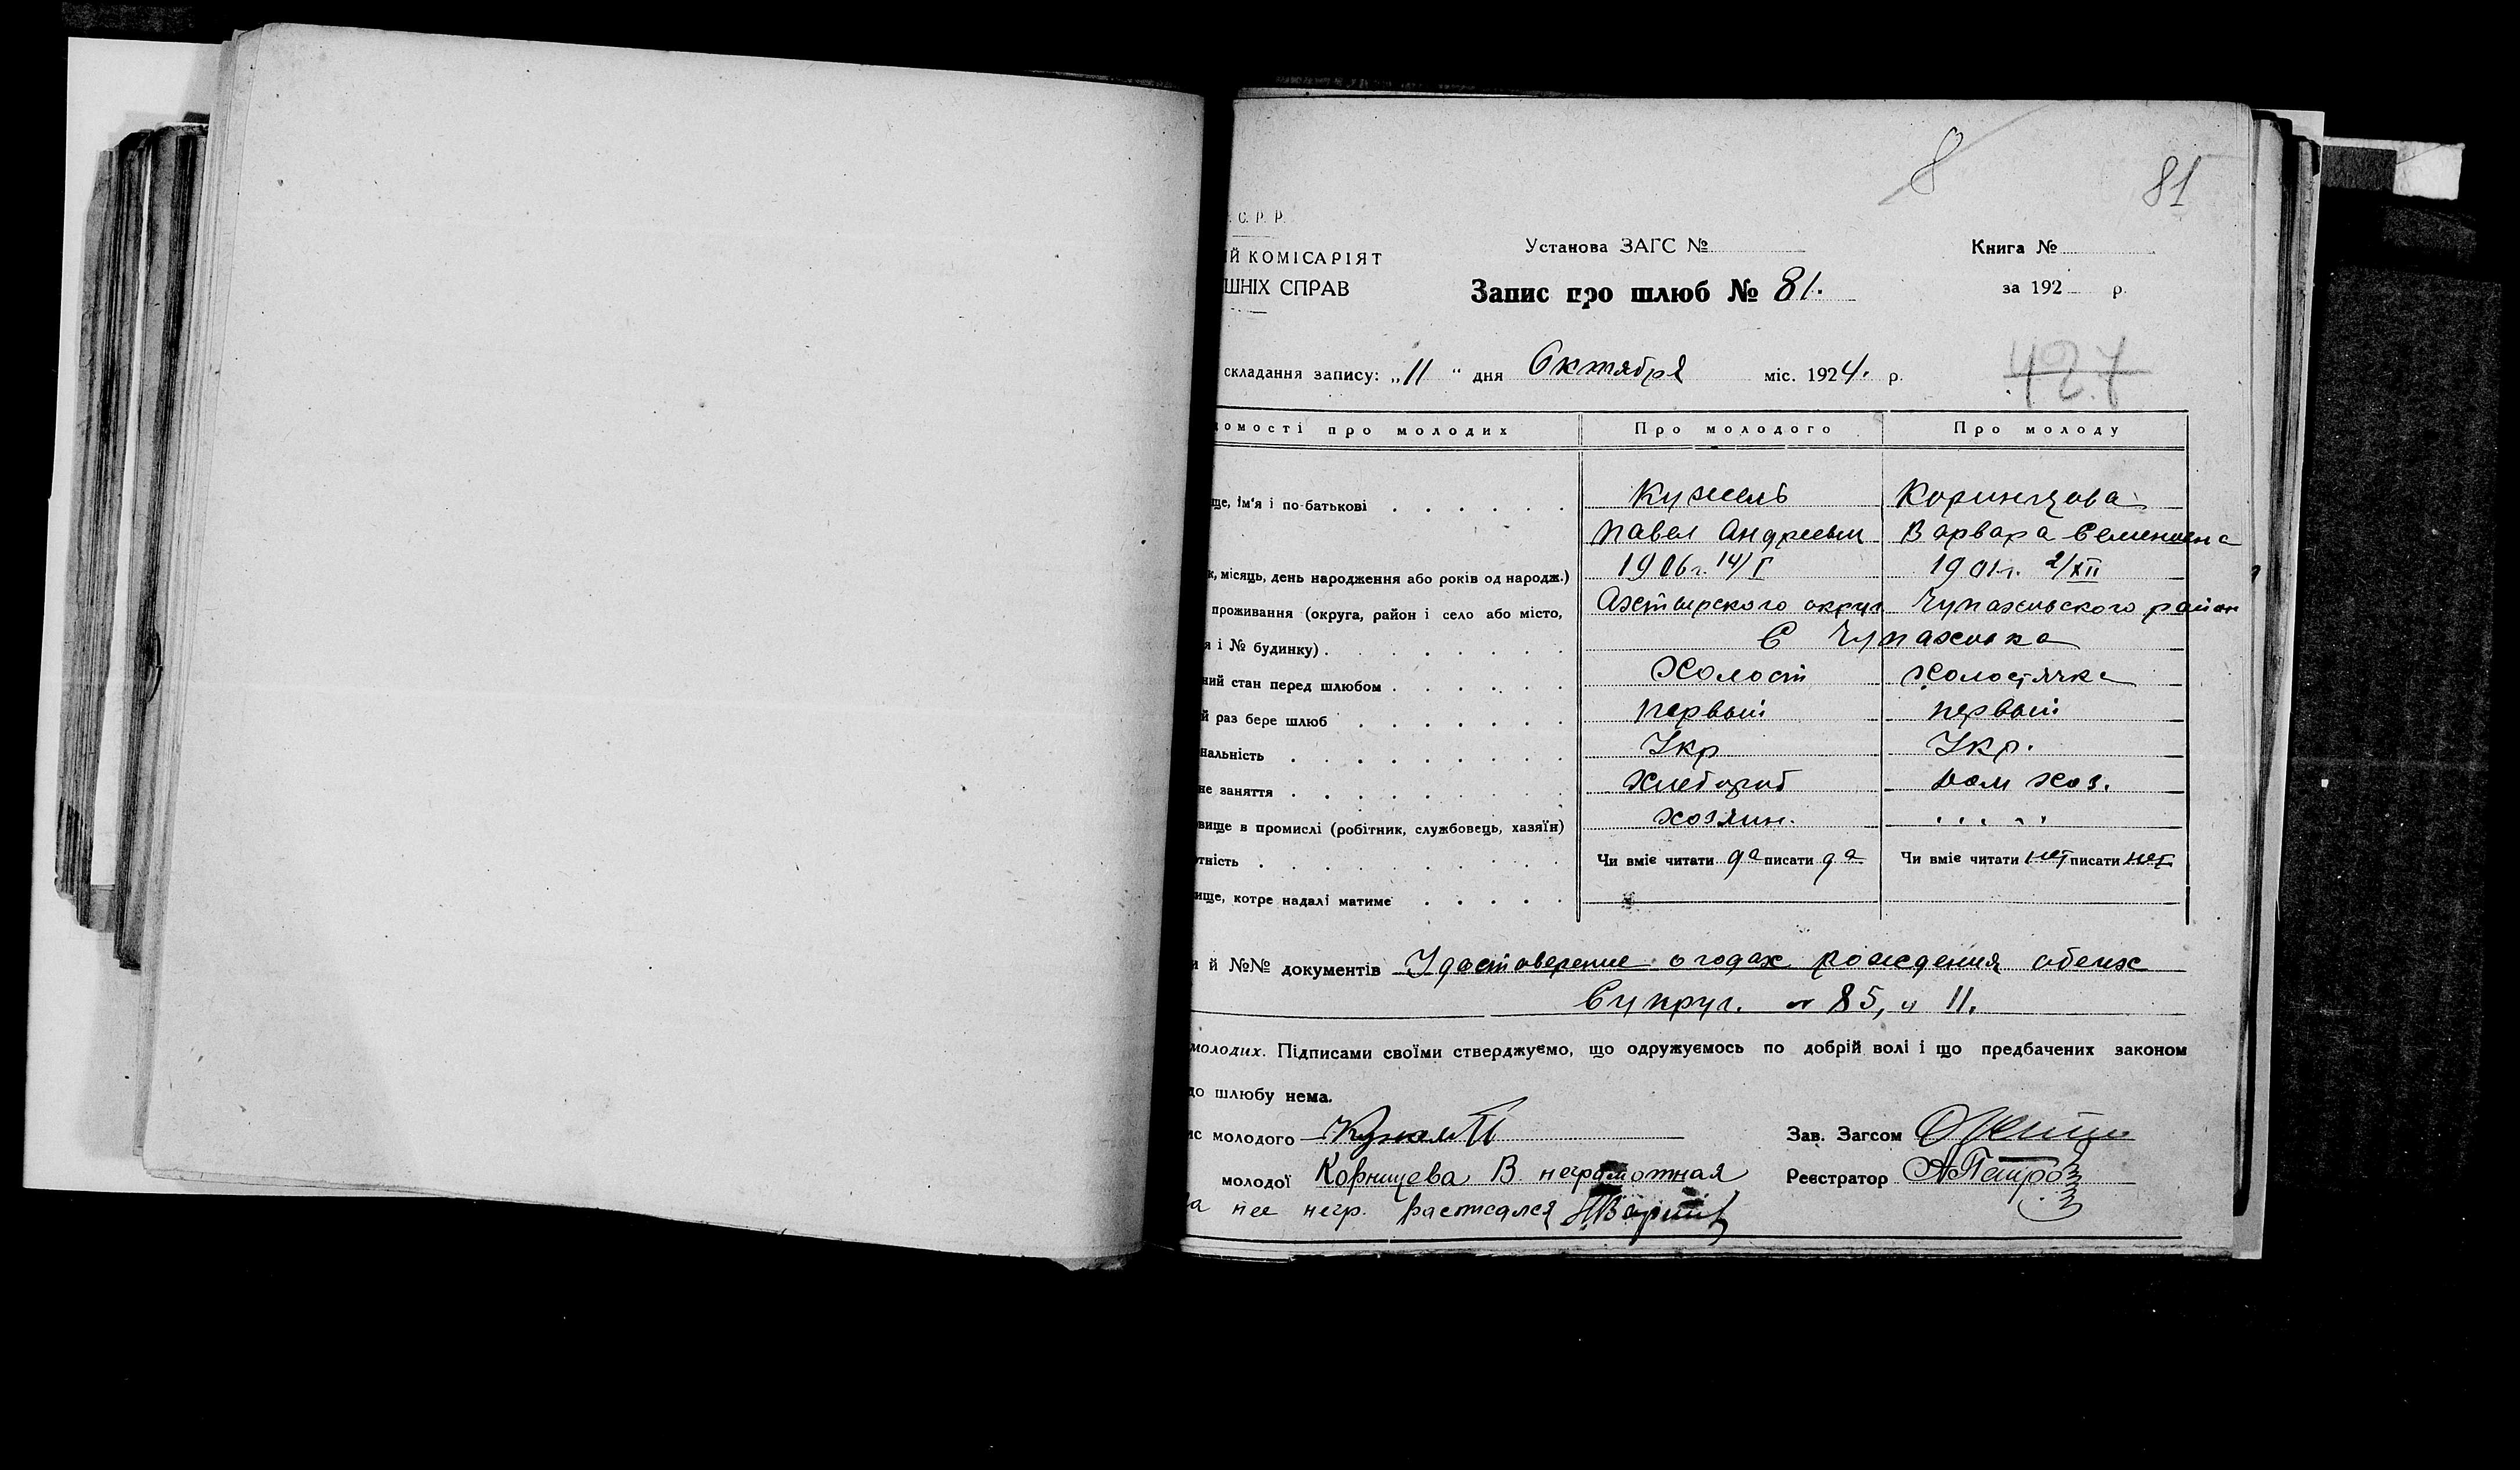 8
81
. С. Р. Р.
Й КОМІСАРІЯТ
ШНІХ СПРАВ
Установа ЗАГС №
Книга №
Запис про шлюб № 81.
за 192 р.
складання запису: „11" дня Октября міс. 1924. р.
427
домості про молодих Про молодого Про молоду
ще, ім'я і по-батькові Кужель
Павел Андреевич Варвара Семеновна
к, місяць, день народження або років од народж.) 1906 г. 14/I 1901 г. 2/XII
проживання (округа, район і село або місто, Ахтырского округа Чупаховского район
я і № будинку) С Чупаховка
ний стан перед шлюбом Холост холостячка
й раз бере шлюб первый первый
нальність Укр Укр.
не заняття хлебороб дом хоз.
вище в промислі (робітник, службовець, хазяїн) хозяин. „ „
тність Чи вміє читати да писати да Чи вміє читати нет писати нет
ище, котре надалі матиме
и й №№ документів Удостоверение о годах рождения обеих
Супруг. 85, и 11.
молодих. Підписами своїми стверджуємо, що одружуємось по добрій волі і що предбачених законом
до шлюбу нема.
ис молодого Кужель П Зав. Загсом
молодої Корницева В. неграмотная Реєстратор АПетров
а нее негр. расписался